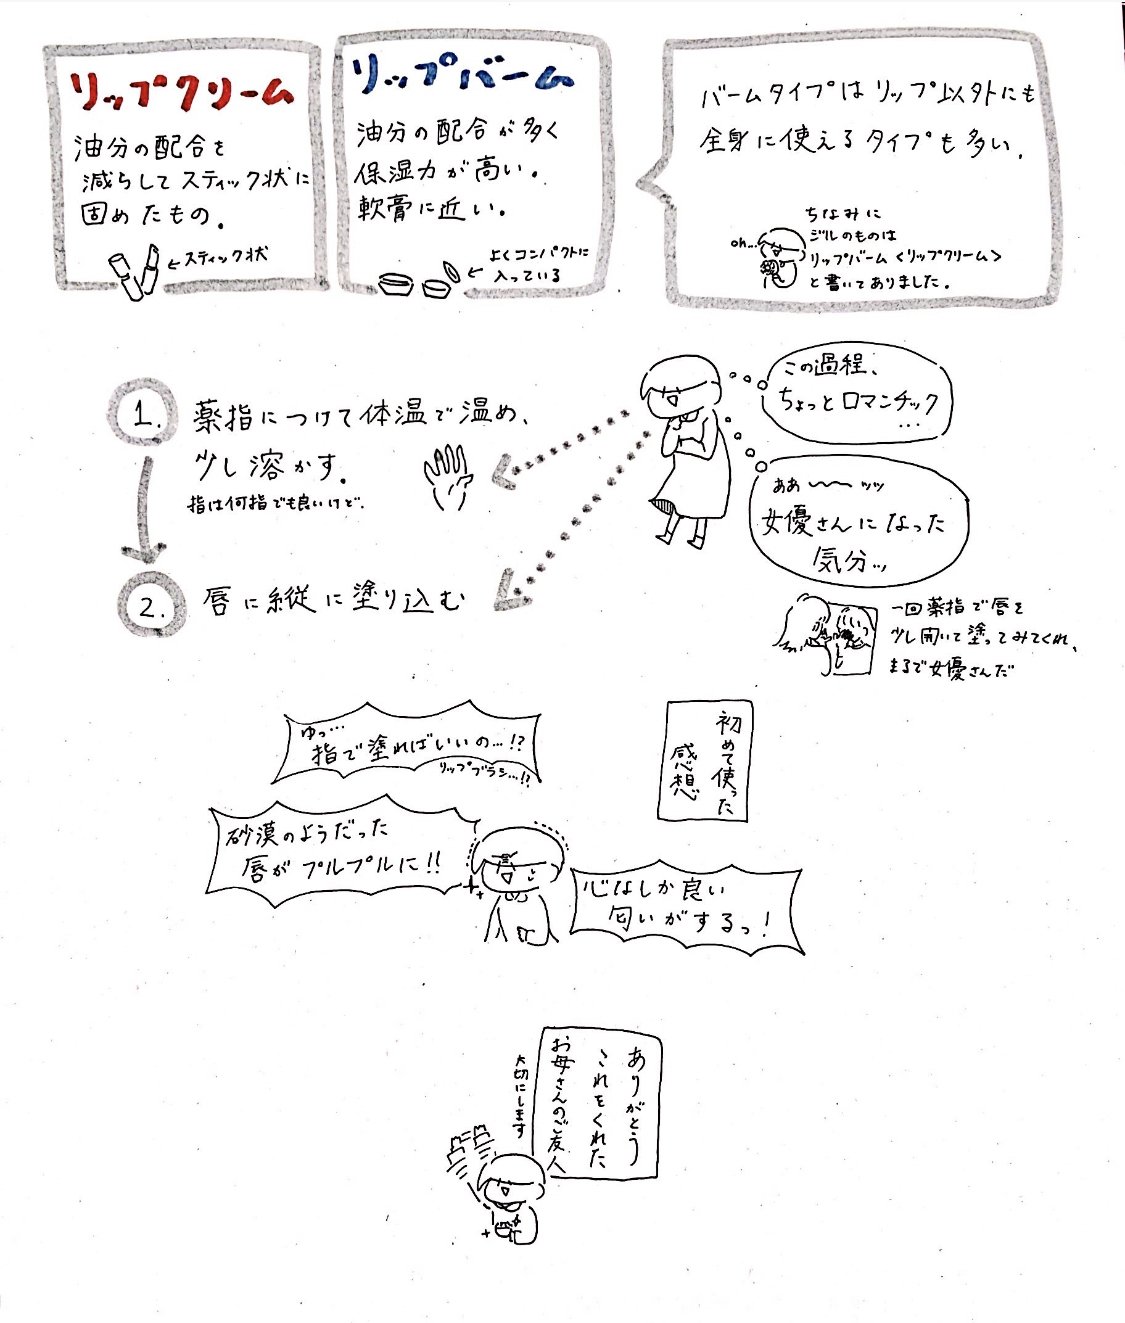 リップクリーム
油分の配合を
減らしてスティック状に
固めたもの。
←スティック状
リップバーム
油分の配合が多く
保湿力が高い。
軟膏に近い。
←よくコンパクトに
入っている
バームタイプはリップ以外にも
全身に使えるタイプも多い。
oh...
ちなみに
ジルのものは
リップバーム<リップクリーム>
と書いてありました。
1.
薬指につけて体温で温め、
少し溶かす。
指は何指でも良いけど。
2.
唇に縦に塗り込む
この過程、
ちょっとロマンチック
...
ああ〜〜ッッ
女優さんになった
気分ッ
一回薬指で唇を
少し開いて塗ってみてくれ、
まるで女優さんだ
初めて使った
感想
ゆっ…
指で塗ればいいの…!?
リップブラシ…!?
砂漠のようだった
唇がプルプルに!!
心なしか良い
匂いがするっ!
ありがとう
これをくれた
お母さんのご友人
大切にします